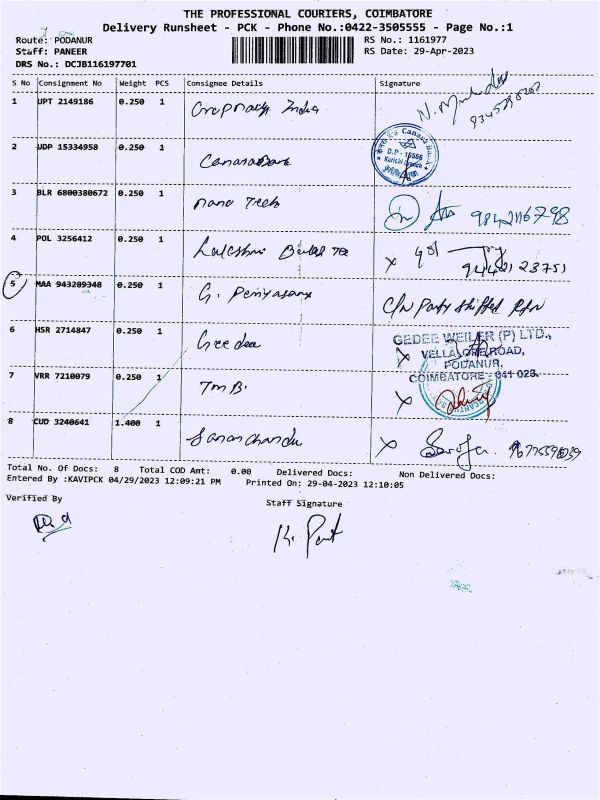 THE PROFESSIONAL COURIERS, COIMBATORE
Delivery Runsheet - PCK - Phone No.:0422-3505555 - Page No.:1
Route: PODANUR
RS No.: 1161977
Staff: PANEER
RS Date: 29-Apr-2023
DRS No.: DCJB116197701
S No Consignment No Weight PCS Consignee Details Signature
1 UPT 2149186 0.250 1 India
2 UDP 15334958 0.250 1 Canara Bank
Canara Bank
D.P - 16556
Kurichi Branch
3 BLR 6800380672 0.250 1 nano Tech 9842116798
4 POL 3256412 0.250 1 Lakshmi
5 MAA 943289348 0.250 1 G. Periyasamy C/N Party shifted RTN
6 HSR 2714847 0.250 1 Geedee
GEDEE WEILER (P) LTD.,
VELLALORE ROAD,
PODANUR,
COIMBATORE - 641 023.
7 VRR 7210079 0.250 1 TMB.
8 CUD 3240641 1.400 1 Saroja.
Total No. Of Docs: 8 Total COD Amt: 0.00 Delivered Docs: Non Delivered Docs:
Entered By :KAVIPCK 04/29/2023 12:09:21 PM Printed On: 29-04-2023 12:10:05
Verified By
Staff Signature